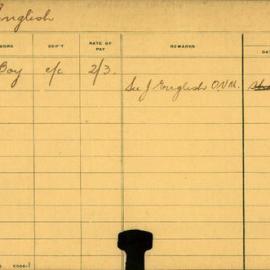 English
WORK DEP'T RATE OF PAY REMARKS DA
Boy c/c 2/3. See J English O.V.M.